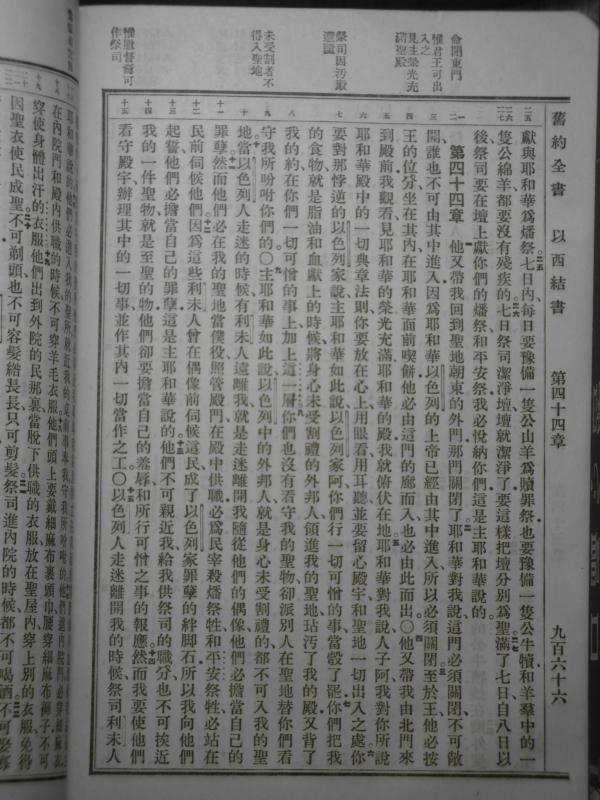 舊約全書 以西結書 第四十四章 九百六十六
獻與耶和華爲燔祭七日內每日要豫備一隻公山羊爲贖罪祭也要豫備一隻公牛犢和羊羣中的一
隻公綿羊都要沒有殘疾的七日祭司潔淨壇壇就潔淨了要這樣把壇分別爲聖滿了七日自八日以
後祭司要在壇上獻你們的燔祭和平安祭我必悅納你們這是主耶和華說的
第四十四章 他又帶我回到聖地朝東的外門那門關閉了耶和華對我說這門必須關閉不可敞
開誰也不可由其中進入因爲耶和華以色列的上帝已經由其中進入所以必須關閉至於王他必按
王的位分坐在其內在耶和華面前喫餅他必由這門的廊而入也必由此而出〇他又帶我由北門來
到殿前我觀看見耶和華的榮光充滿耶和華的殿我就俯伏在地耶和華對我說人子阿我對你所說
耶和華殿中的一切典章法則你要放在心上用眼看用耳聽並要留心殿宇和聖地一切出入之處你
要對那悖逆的以色列家說主耶和華如此說以色列家阿你們行一切可憎的事當彀了罷你們把我
的食物就是脂油和血獻上的時候將身心未受割禮的外邦人領進我的聖地玷污了我的殿又背了
我的約在你們一切可憎的事上加上這一層你們也沒有看守我的聖物卻派別人在聖地替你們看
守我所吩咐你們的〇主耶和華如此說以色列中的外邦人就是身心未受割禮的都不可入我的聖
地當以色列人走迷的時候有利未人遠離我就是走迷離開我隨從他們的偶像他們必擔當自己的
罪孽然而他們必在我的聖地當僕役照管殿門在殿中供職必爲民宰殺燔祭牲和平安祭牲必站在
民前伺候他們因爲這些利未人曾在偶像前伺候這民成了以色列家罪孽的絆腳石所以我向他們
起誓他們必擔當自己的罪孽這是主耶和華說的他們不可親近我給我供祭司的職分也不可挨近
我的一件聖物就是至聖的物他們卻要擔當自己的羞辱和所行可憎之事的報應然而我要使他們
看守殿宇辦理其中的一切事並作其內一切當作之工〇以色列人走迷離開我的時候祭司利未人
命閉東門
惟君王可出
入之
見主榮光充
滿聖殿
祭司因汚殿
遭譴
未受割者不
得入聖地
在內院門和殿內供職的時候不可穿羊毛衣服他們頭上要戴細麻布裹頭巾腰穿細麻布褲子不可
穿使身體出汗的衣服他們出到外院的民那裏當脫下供職的衣服放在聖屋內穿上別的衣服免得
因聖衣使民成聖不可剃頭也不可容髮綹長長只可剪髮祭司進內院的時候都不可喝酒不可娶寡